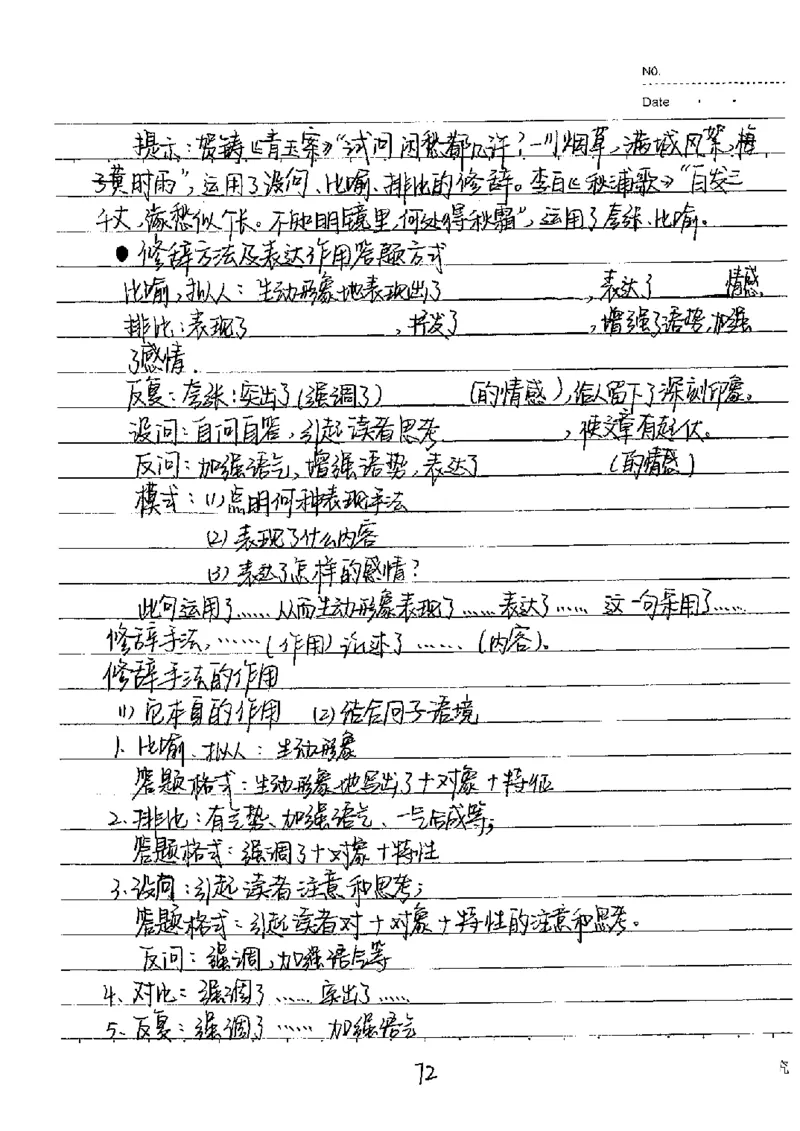 NO.
Date
提示：贺铸《青玉案》“试问闲愁都几许？一川烟草，满城风絮，梅
子黄时雨”，运用了设问、比喻、排比的修辞。李白《秋浦歌》“白发三
千丈，缘愁似个长。不知明镜里，何处得秋霜”，运用了夸张、比喻。
● 修辞方法及表达作用答题方式
比喻，拟人：生动形象地表现出了 ，表达了 情感
排比：表现了 ，抒发了 ，增强了语势，加强
了感情．
反复：夸张：突出了（强调了） （的情感），给人留下了深刻印象。
设问：自问自答，引起读者思考 ，使文章有起伏。
反问：加强语气，增强语势，表达了 （的情感）
模式：（1）点明何种表现手法
（2）表现了什么内容
（3）表达了怎样的感情？
此句运用了……从而生动形象表现了……表达了…… 这一句采用了……
修辞手法，……（作用）论述了……（内容）。
修辞手法的作用
（1）它本身的作用 （2）结合句子语境
1. 比喻、拟人：生动形象
答题格式：生动形象地写出了＋对象＋特征
2. 排比：有气势、加强语气、一气呵成等；
答题格式：强调了＋对象＋特性
3. 设问：引起读者注意和思考；
答题格式：引起读者对＋对象＋特性的注意和思考。
反问：强调，加强语气等
4、对比：强调了……突出了……
5、反复：强调了…… 加强语气
72